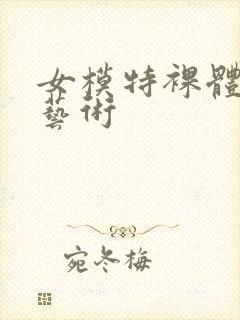 女模特裸體
藝術
宛冬梅